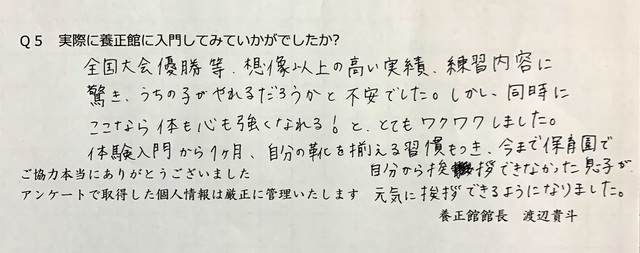 Ｑ５　実際に養正館に入門してみていかがでしたか?
全国大会優勝等、想像以上の高い実績、練習内容に
驚き、うちの子がやれるだろうかと不安でした。しかし、同時に
ここなら体も心も強くなれる！と、とてもワクワクしました。
体験入門から1ヶ月、自分の靴を揃える習慣もつき、今まで保育園で
自分から挨拶できなかった息子が
元気に挨拶できるようになりました。
ご協力本当にありがとうございました
アンケートで取得した個人情報は厳正に管理いたします
養正館館長　渡辺貴斗